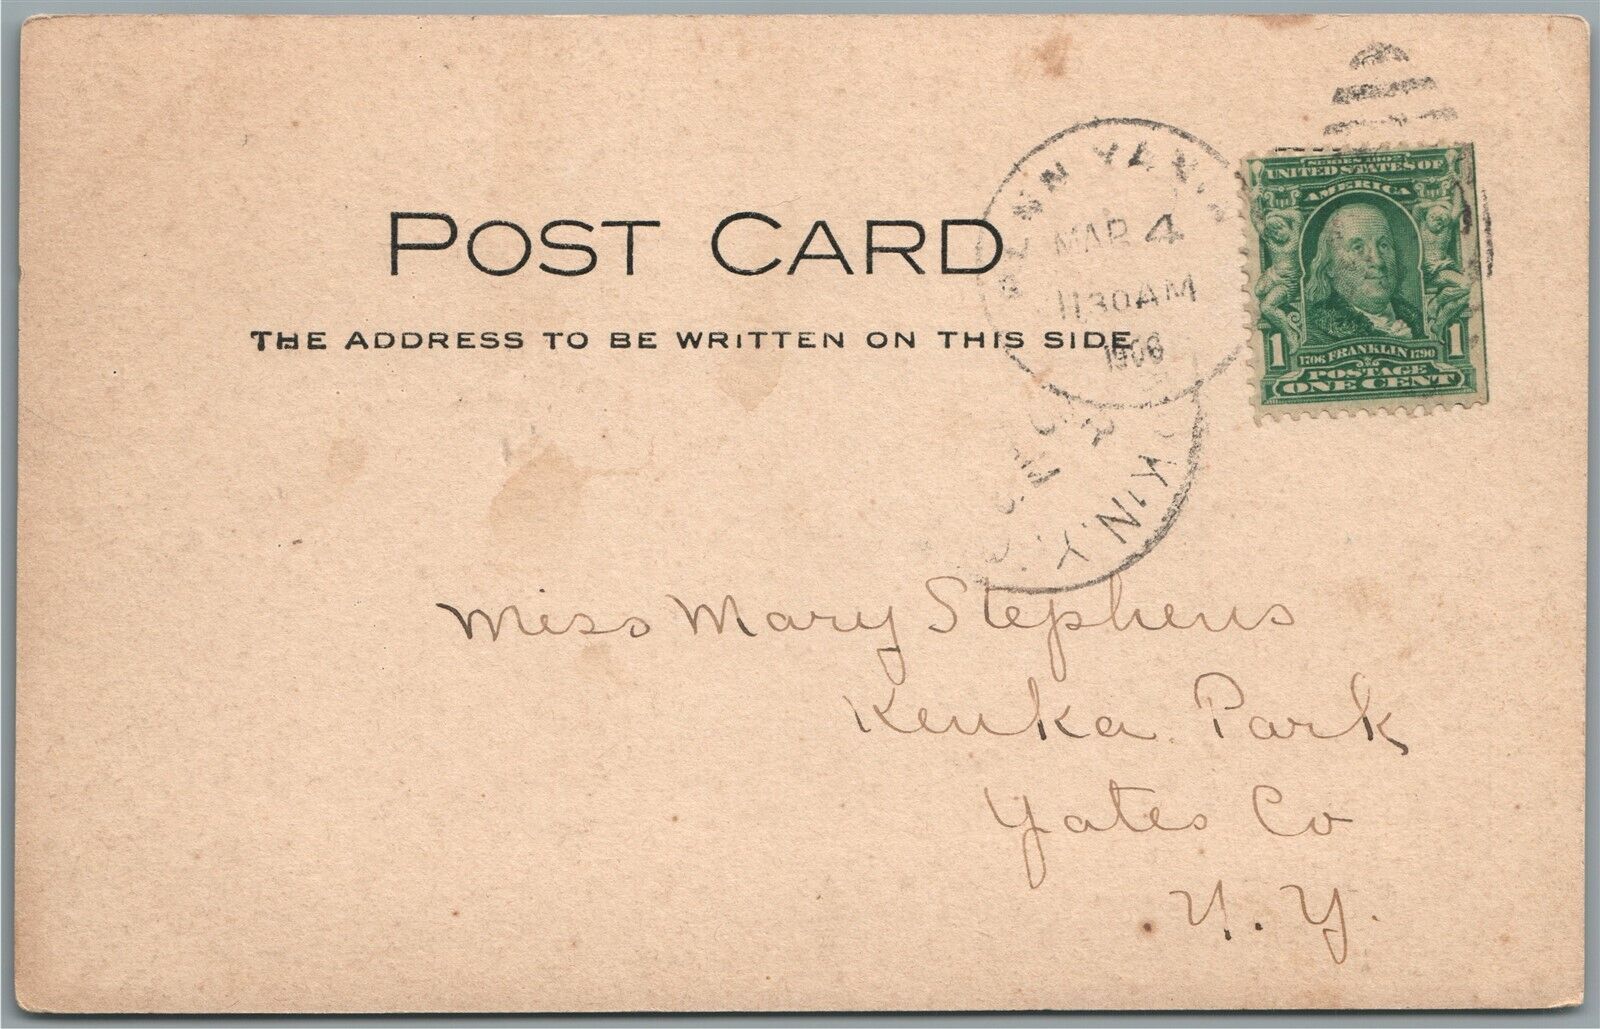 POST CARD
THE ADDRESS TO BE WRITTEN ON THIS SIDE
MAR 4
1130 AM
1906
SERIES 1902
UNITED STATES OF
AMERICA
1 1706 FRANKLIN 1790 1
POSTAGE
ONE CENT
Miss Mary Stephens
Keuka Park
Yates Co
N. Y.